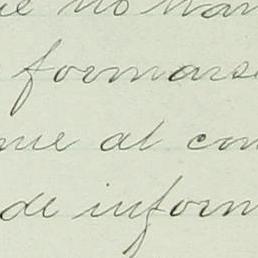 ue no han
formarse
me al con
de inform